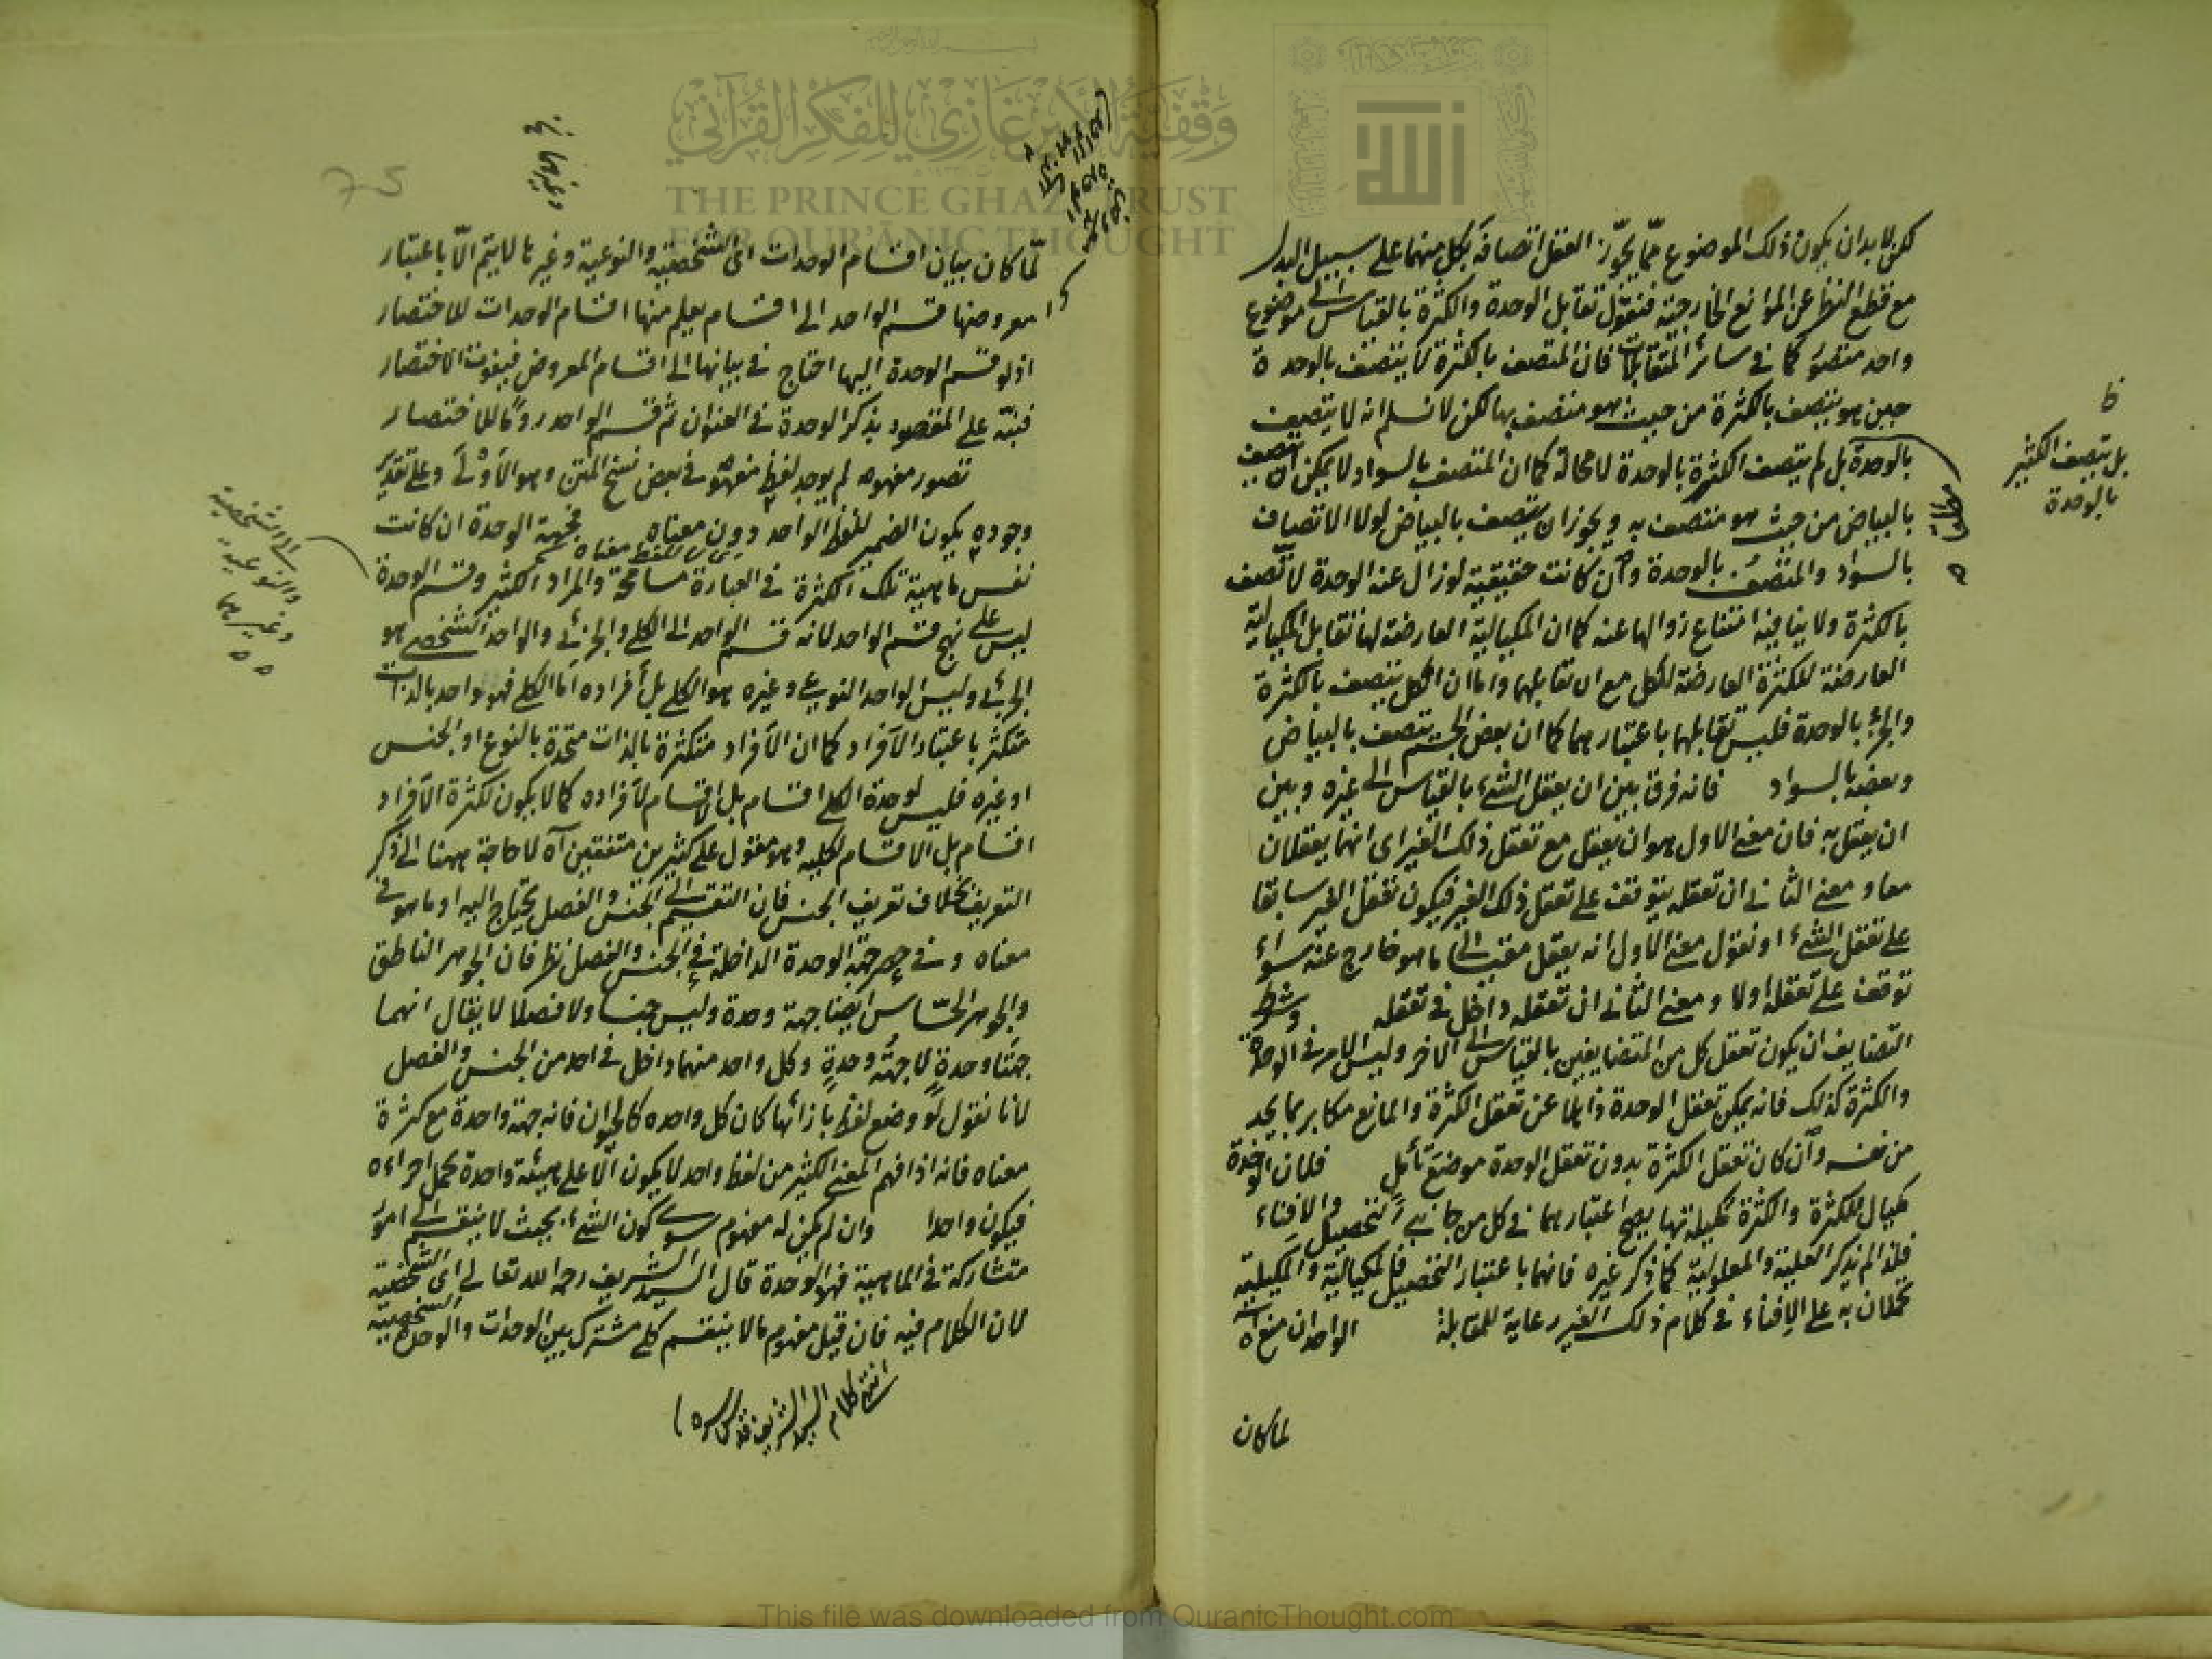 لكن لا بد ان يكون ذلك الموضوع مما يجوّز العقل اتصافه بكل منهما على سبيل البدل
مع قطع النظر عن الموانع الخارجية فنقول تقابل الوحدة والكثرة بالقياس الى موضوع
واحد متصوّر كما في سائر المتقابلات فان المتصف بالكثرة لا يتصف بالوحدة
حين هو يتصف بالكثرة من حيث هو متصف بها لكن لا نسلم انه لا يتصف
بالوحدة بل لم يتصف الكثرة بالوحدة لا محالة كما ان المتصف بالسواد لا يمكن ان يتصف
بالبياض من حيث هو متصف به ويجوز ان يتصف بالبياض لولا الاتصاف
بالسواد والمتصف بالوحدة وان كانت حقيقية لو زال عنه الوحدة لاتّصف
بالكثرة ولا ينافيه امتناع زوالها عنه كما ان المكيالية العارضة لها تقابل المكيالية
العارضة للكثرة العارضة للكل مع ان تقابلهما واما ان الكل يتصف بالكثرة
والجزء بالوحدة فليس تقابلهما باعتبارهما كما ان بعض الجسم يتصف بالبياض
وبعضه بالسواد فانه فرق بين ان يعقل الشئ بالقياس الى غيره وبين
ان يعقل به فان معنى الاول هو ان يعقل مع تعقل ذلك الغير اى انهما يعقلان
معا ومعنى الثانى ان تعقله يتوقف على تعقل ذلك الغير فيكون تعقل الغير سابقا
على تعقل الشئ او نقول معنى الاول انه يعقل مقيسا الى ما هو خارج عنه سواء
توقف على تعقله اولا ومعنى الثانى ان تعقله داخل فى تعقله وشرط
التضايف ان يكون تعقل كل من المتضايفين بالقياس الى الاخر وليس الامر فى الوحدة
والكثرة كذلك فانه يمكن تعقل الوحدة ذاهلا عن تعقل الكثرة والمانع مكابر بما يجد
من نفسه وان كان تعقل الكثرة بدون تعقل الوحدة موضع تأمل فلان الوحدة
مكيال للكثرة والكثرة مكيلة بها يصح اعتبارهما فى كل من جانبى التحصيل والافناء
فلذا لم يذكر العلية والمعلولية كما ذكر غيره فانهما باعتبار التحصيل فالمكيالية والمكيلية
تحملان به على الافناء فى كلام ذلك الغير رعاية للمقابلة الواحد ان منع
لما كان
بل يتصف الكثير
بالوحدة
لمّا كان بيان اقسام الوحدات اى الشخصية والنوعية وغيرها لا يتم الا باعتبار
معروضها قسم الواحد الى اقسام يعلم منها اقسام الوحدات للاختصار
اذ لو قسم الوحدة اليها احتاج فى بيانها الى اقسام المعروض فيفوت الاختصار
فنبّه على المقصود بذكر الوحدة فى العنوان ثم قسم الواحد روما للاختصار
تصور مفهومه لم يوجد لفظ مفهومه فى بعض نسخ المتن وهو الاولى وعلى تقدير
وجوده يكون الضمير للفظ الواحد دون معناه فجهة الوحدة ان كانت
نفس ماهية تلك الكثرة فى العبارة مسامحة والمراد الكثير وقسم الوحدة
ليس على نهج قسم الواحد لانه قسم الواحد الى الكلى والجزئى والواحد الشخصى هو
الجزئى وليس الواحد النوعى وغيره هو الكلى بل أفراده اما الكلى فهو واحد بالذات
متكثر باعتبار الأفراد كما ان الأفراد متكثرة بالذات متحدة بالنوع او الجنس
او غيره فليس لوحدة الكلى اقسام بل الاقسام لأفراده كما لا يكون لكثرة الأفراد
اقسام بل الاقسام لكليه وهو مقول على كثيرين متفقين آه لا حاجة ههنا الى ذكر
التعريف بخلاف تعريف الجنس فان التقسيم الى الجنس والفصل يحتاج اليه او ما هو فى
معناه وفى حصر جهة الوحدة الداخلة فى الجنس والفصل نظر فان الجوهر الناطق
والجوهر الحسّاس ايضا جهة وحدة وليس جنسا ولا فصلا لا يقال انهما
جهتا وحدةٍ لا جهةُ وحدةٍ وكل واحد منهما داخل فى احد من الجنس والفصل
لانا نقول لو وضع لفظ بازائها كان كل واحده كالحيوان فانه جهة واحدة مع كثرة
معناه فانه اذا فهم المعنى الكثير من لفظ واحد لا يكون الا على هيئة واحدة تحمل اجزاءه
فيكون واحدا وان لم يكن له مفهوم سوى كون الشئ بحيث لا ينقسم الى امور
متشاركة فى الماهية فهو الوحدة قال السيد الشريف رحمه الله تعالى اى الشخصية
لان الكلام فيه فان قيل مفهوم ما لا ينقسم كلى مشترك بين الوحدات والوحدة الشخصية
انتهى كلام السيد الشريف قدس سره)
الى الشخصية
والنوعية
وغيرهما
75
وقفية الأمير غازي للفكر القرآني
THE PRINCE GHAZI TRUST
FOR QUR'ĀNIC THOUGHT
الله
This file was downloaded from QuranicThought.com